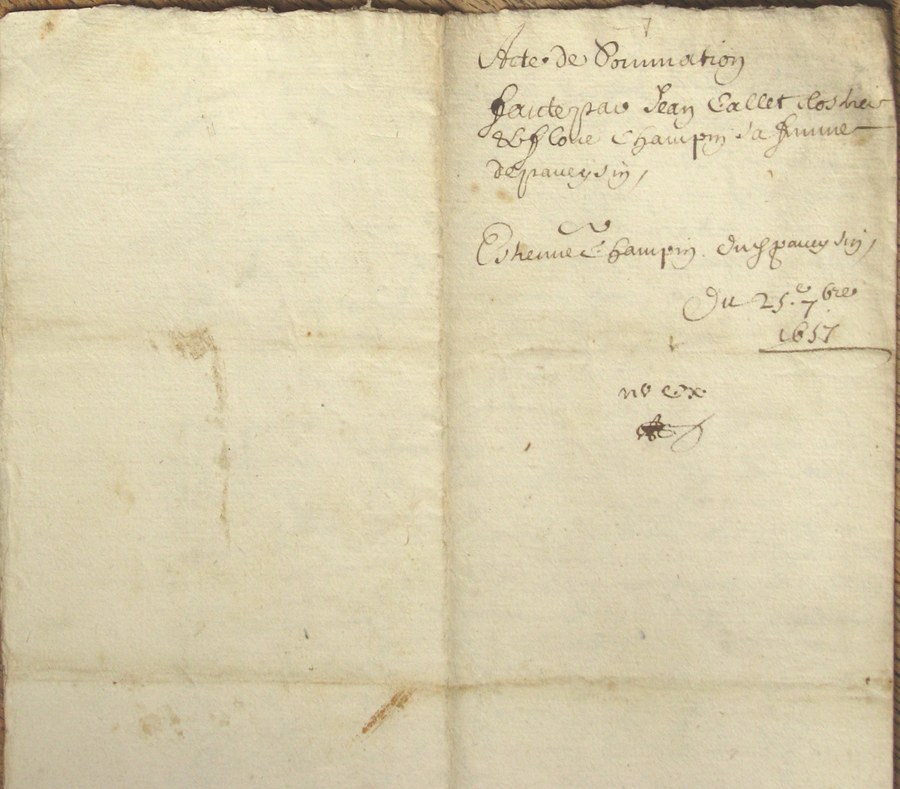 Acte de Sommation
faicte par Jean Callet
& Floue Champin sa femme
de paueysin,
Estienne Champin dud paueysin,
Du 25.e 7bre
1657